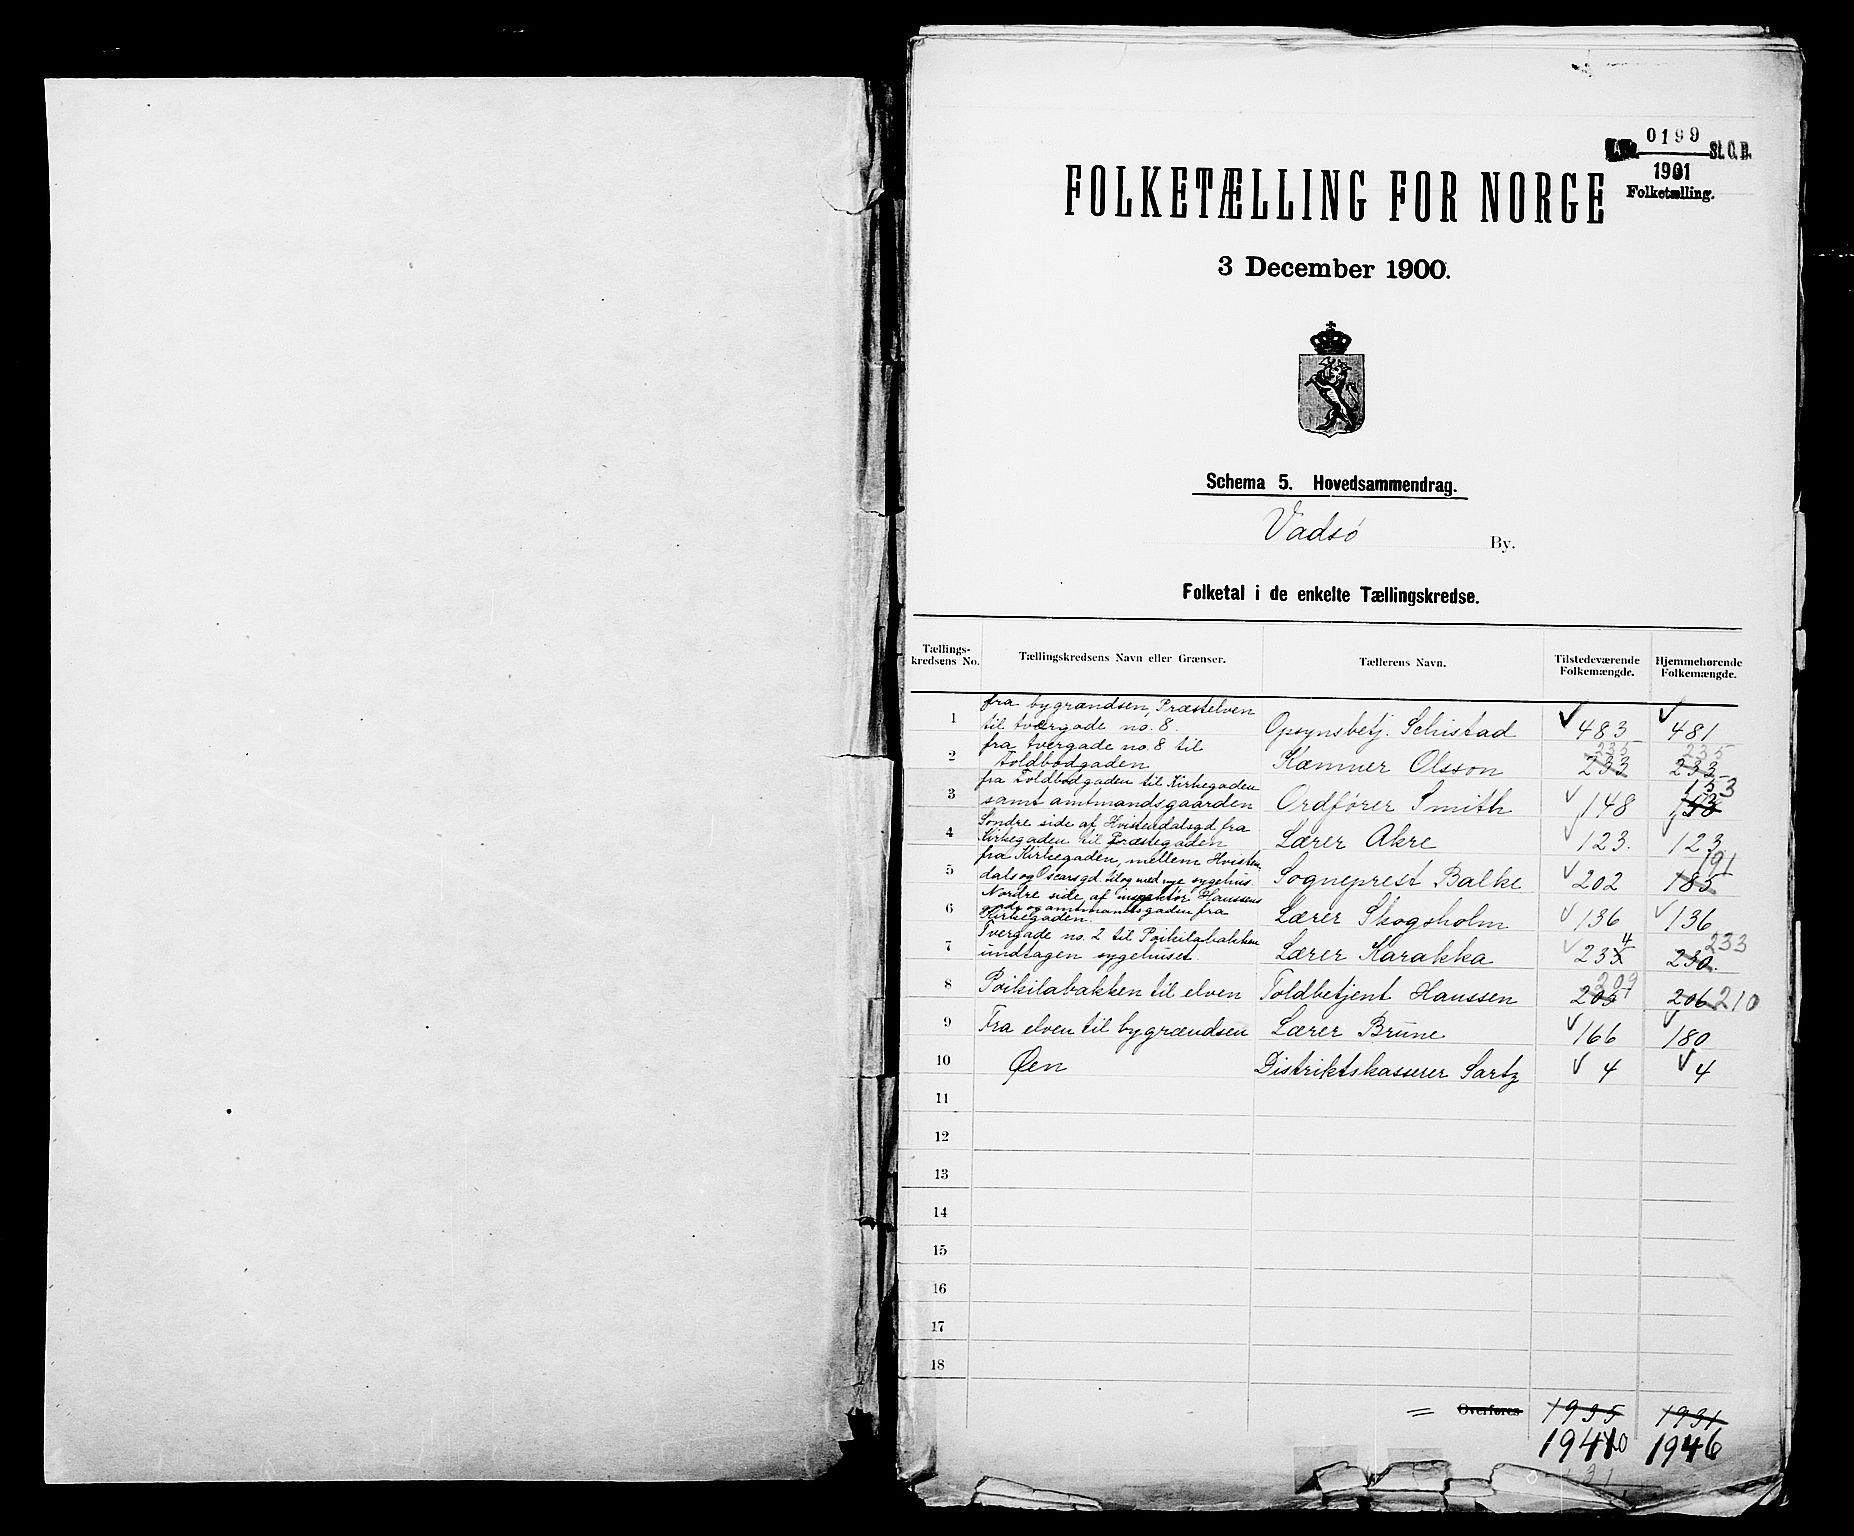 0199
St. C. B.
1901
Folketælling.
FOLKETÆLLING FOR NORGE
3 December 1900.
Schema 5. Hovedsammendrag.
Vadsø By.
Folketal i de enkelte Tællingskredse.
Tællings-kredsens No. Tællingskredsens Navn eller Grænser. Tællerens Navn. Tilstedeværende Folkemængde. Hjemmehørende Folkemængde.
fra bygrændsen, Præstelven
1 til tværgade no. 8. Opsynsbetj. Schistad 483 481
fra tvergade no. 8 til 235 235
2 Toldbodgaden Kæmner Olsson 233 233
fra Toldbodgaden til Kirkegaden 153
3 samt amtmandsgaarden Ordfører Smith 148
Søndre side af Hvistendalsgd fra
4 Kirkegaden til Præstegaden Lærer Akre 123. 123
fra Kirkegaden, mellem Hvisten 191
5 dals og Oscarsgd. til og med nye sygehus Sogneprest Balke 202 185
Nordre side af inspektør Hanssens
gade og amtmandsgaden fra
6 Kirkegaden. Lærer Skogsholm 136 136
Tvergade no. 2 til Poikilabakken 4 233
7 undtagen sygehuset. Lærer Karakka 233 230.
209
8 Poikilabakken til elven Toldbetjent Hanssen 207 206 210
9 Fra elven til bygrændsen Lærer Brune 166 180
10 Øen Distriktskasserer Sartz 4 4
11
12
13
14
15
16
17
18
= Overføres 1935 1931
1940 1946